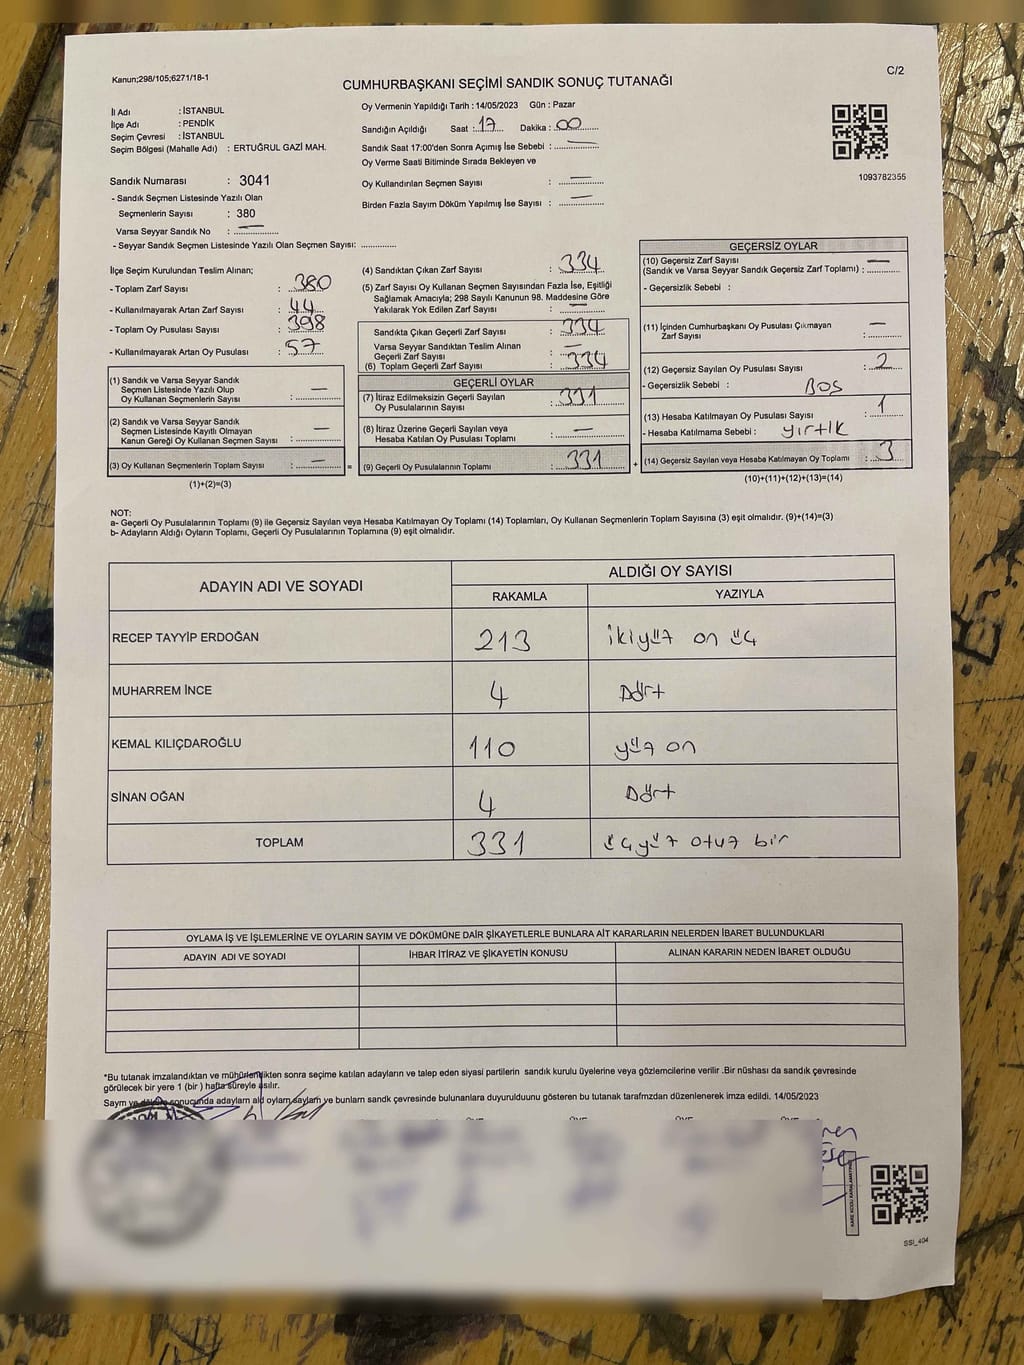 Kanun;298/105;6271/18-1
C/2
CUMHURBAŞKANI SEÇİMİ SANDIK SONUÇ TUTANAĞI
İl Adı : İSTANBUL
İlçe Adı : PENDİK
Seçim Çevresi : İSTANBUL
Seçim Bölgesi (Mahalle Adı) : ERTUĞRUL GAZİ MAH.
Sandık Numarası : 3041
- Sandık Seçmen Listesinde Yazılı Olan
Seçmenlerin Sayısı : 380
Varsa Seyyar Sandık No : —
- Seyyar Sandık Seçmen Listesinde Yazılı Olan Seçmen Sayısı: ............
Oy Vermenin Yapıldığı Tarih : 14/05/2023 Gün : Pazar
Sandığın Açıldığı Saat : 17 Dakika : 00
Sandık Saat 17:00'den Sonra Açımış İse Sebebi : —
Oy Verme Saati Bitiminde Sırada Bekleyen ve
Oy Kullandırılan Seçmen Sayısı : —
Birden Fazla Sayım Döküm Yapılmış İse Sayısı : —
1093782355
İlçe Seçim Kurulundan Teslim Alınan;
- Toplam Zarf Sayısı : 380
- Kullanılmayarak Artan Zarf Sayısı : 44
- Toplam Oy Pusulası Sayısı : 398
- Kullanılmayarak Artan Oy Pusulası : 57
(1) Sandık ve Varsa Seyyar Sandık
Seçmen Listesinde Yazılı Olup
Oy Kullanan Seçmenlerin Sayısı : —
(2) Sandık ve Varsa Seyyar Sandık
Seçmen Listesinde Kayıtlı Olmayan
Kanun Gereği Oy Kullanan Seçmen Sayısı : —
(3) Oy Kullanan Seçmenlerin Toplam Sayısı : — =
(1)+(2)=(3)
(4) Sandıktan Çıkan Zarf Sayısı : 334
(5) Zarf Sayısı Oy Kullanan Seçmen Sayısından Fazla İse, Eşitliği
Sağlamak Amacıyla; 298 Sayılı Kanunun 98. Maddesine Göre
Yakılarak Yok Edilen Zarf Sayısı : —
Sandıkta Çıkan Geçerli Zarf Sayısı : 334
Varsa Seyyar Sandıktan Teslim Alınan
Geçerli Zarf Sayısı : —
(6) Toplam Geçerli Zarf Sayısı : 334
GEÇERLİ OYLAR
(7) İtiraz Edilmeksizin Geçerli Sayılan
Oy Pusulalarının Sayısı : 331
(8) İtiraz Üzerine Geçerli Sayılan veya
Hesaba Katılan Oy Pusulası Toplamı : —
(9) Geçerli Oy Pusulalarının Toplamı : 331 +
GEÇERSİZ OYLAR
(10) Geçersiz Zarf Sayısı —
(Sandık ve Varsa Seyyar Sandık Geçersiz Zarf Toplamı) : ............
- Geçersizlik Sebebi :
(11) İçinden Cumhurbaşkanı Oy Pusulası Çıkmayan
Zarf Sayısı : —
(12) Geçersiz Sayılan Oy Pusulası Sayısı : 2
- Geçersizlik Sebebi : BOŞ
(13) Hesaba Katılmayan Oy Pusulası Sayısı : 1
- Hesaba Katılmama Sebebi : yırtık
(14) Geçersiz Sayılan veya Hesaba Katılmayan Oy Toplamı : 3
(10)+(11)+(12)+(13)=(14)
NOT:
a- Geçerli Oy Pusulalarının Toplamı (9) ile Geçersiz Sayılan veya Hesaba Katılmayan Oy Toplamı (14) Toplamları, Oy Kullanan Seçmenlerin Toplam Sayısına (3) eşit olmalıdır. (9)+(14)=(3)
b- Adayların Aldığı Oyların Toplamı, Geçerli Oy Pusulalarının Toplamına (9) eşit olmalıdır.
ADAYIN ADI VE SOYADI ALDIĞI OY SAYISI
RAKAMLA YAZIYLA
RECEP TAYYİP ERDOĞAN 213 ikiyüz on üç
MUHARREM İNCE 4 Dört
KEMAL KILIÇDAROĞLU 110 yüz on
SİNAN OĞAN 4 Dört
TOPLAM 331 üçyüz otuz bir
OYLAMA İŞ VE İŞLEMLERİNE VE OYLARIN SAYIM VE DÖKÜMÜNE DAİR ŞİKAYETLERLE BUNLARA AİT KARARLARIN NELERDEN İBARET BULUNDUKLARI
ADAYIN ADI VE SOYADI İHBAR İTİRAZ VE ŞİKAYETİN KONUSU ALINAN KARARIN NEDEN İBARET OLDUĞU
*Bu tutanak imzalandıktan ve mühürlendikten sonra seçime katılan adayların ve talep eden siyasi partilerin sandık kurulu üyelerine veya gözlemcilerine verilir .Bir nüshası da sandık çevresinde
görülecek bir yere 1 (bir ) hafta süreyle asılır.
Sayım ve döküm sonucunda adayların ald oyların sayların ve bunların sandk çevresinde bulunanlara duyurulduunu gösteren bu tutanak tarafmzdan düzenlenerek imza edildi. 14/05/2023
KARE KODU KARALAMAYINIZ
SSİ_404